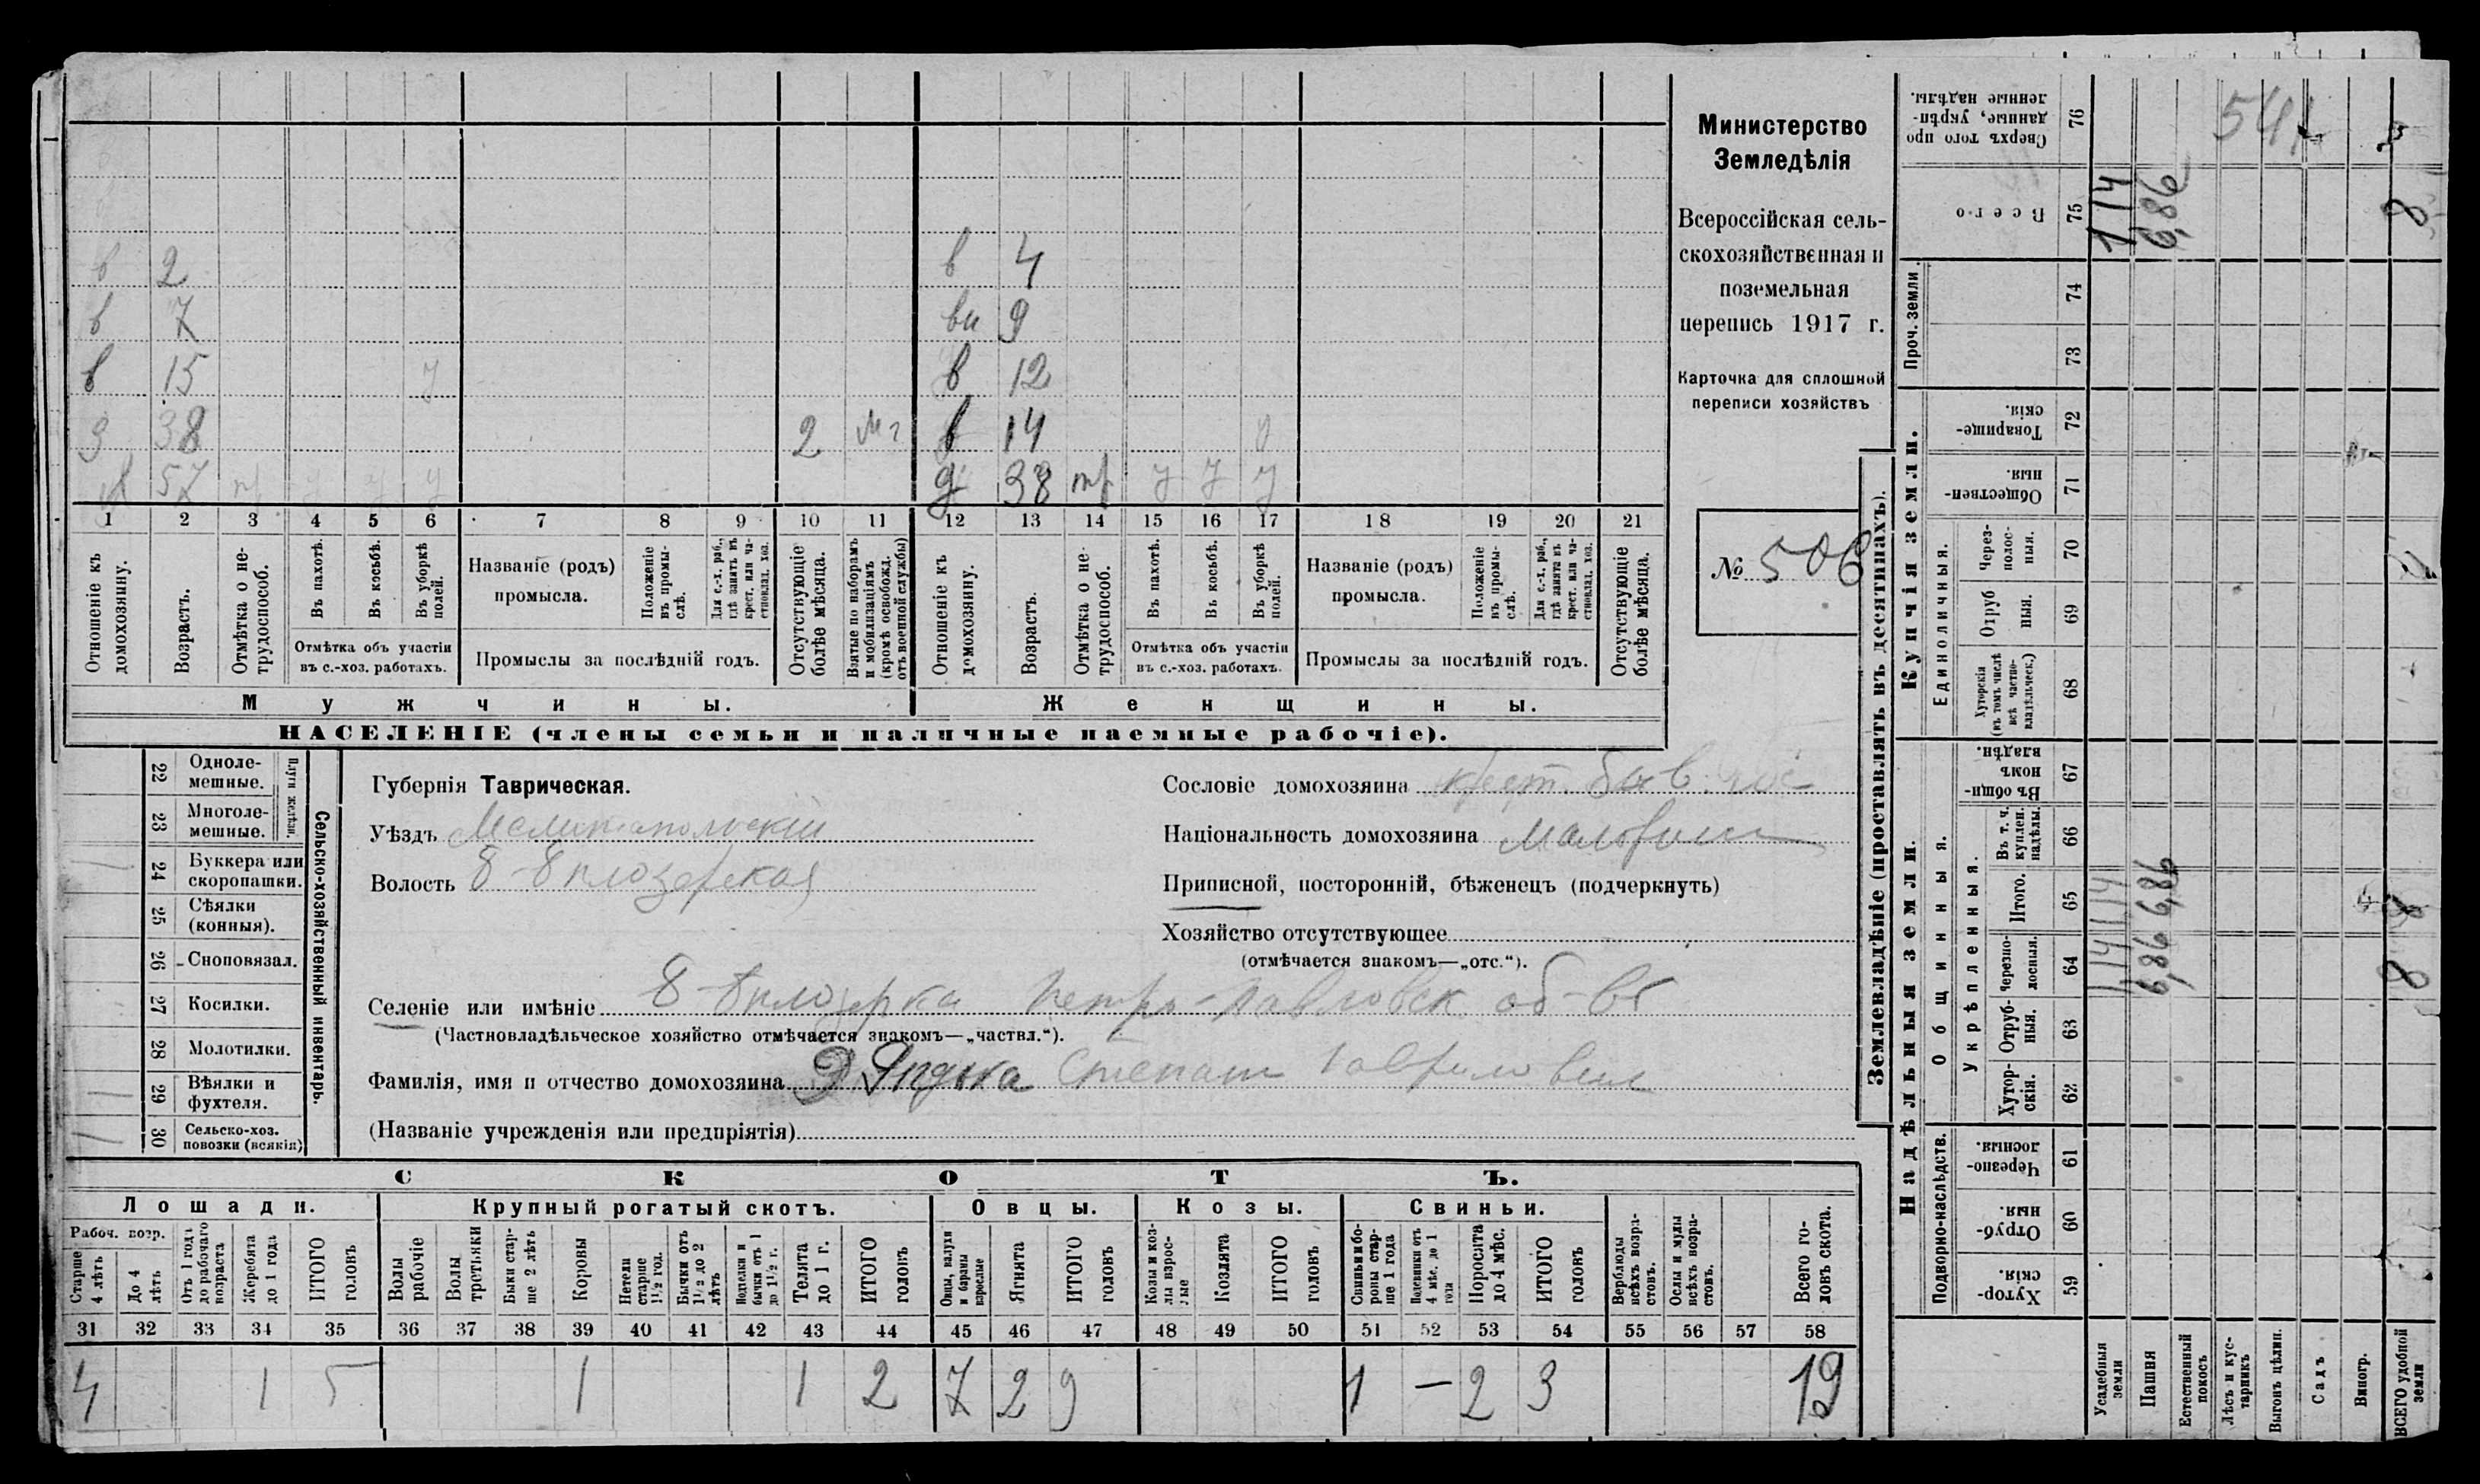 Министерство
Земледѣлія
Всероссійская сель-
скохозяйственная и
поземельная
перепись 1917 г.
Карточка для сплошной
переписи хозяйствъ
№ 506
в 2 в 4
в 7 вн 9
в 15 у в 12
з 38 2 мг в 14
57 тр у у у д 38 тр у у у
1 2 3 4 5 6 7 8 9 10 11 12 13 14 15 16 17 18 19 20 21
Отношеніе къ домохозяину.
Возрастъ.
Отмѣтка о не-трудоспособ.
Въ пахотѣ.
Въ косьбѣ.
Въ уборкѣ полей.
Отмѣтка объ участіи
въ с.-хоз. работахъ.
Названіе (родъ)
промысла.
Положеніе въ промы-слѣ.
Для с.-х. раб., гдѣ занятъ въ крест. или ча-стновлад. хоз.
Промыслы за послѣдній годъ.
Отсутствующіе болѣе мѣсяца.
Взятые по наборамъ и мобилизаціямъ (кромѣ освобожд. отъ военной службы)
Отношеніе къ домохозяину.
Возрастъ.
Отмѣтка о не-трудоспособ.
Въ пахотѣ.
Въ косьбѣ.
Въ уборкѣ полей.
Отмѣтка объ участіи
въ с.-хоз. работахъ.
Названіе (родъ)
промысла.
Положеніе въ промы-слѣ.
Для с.-х. раб., гдѣ занята въ крест. или ча-стновлад. хоз.
Промыслы за послѣдній годъ.
Отсутствующіе болѣе мѣсяца.
Мужчины. Женщины.
НАСЕЛЕНІЕ (члены семьи и наличные наемные рабочіе).
Сельско-хозяйственный инвентарь.
Плуги желѣзн.
22 Одноле-мешные.
23 Многоле-мешные.
24 Буккера или скоропашки.
25 Сѣялки (конныя).
26 Сноповязал.
27 Косилки.
28 Молотилки.
29 Вѣялки и фухтеля.
30 Сельско-хоз. повозки (всякія)
Губернія Таврическая.
Уѣздъ Мелитопольскій
Волость Б-Бѣлозерская
Сословіе домохозяина крест. быв. гос
Національность домохозяина Малорос
Приписной, посторонній, бѣженецъ (подчеркнуть)
Хозяйство отсутствующее
(отмѣчается знакомъ—„отс.“).
Селеніе или имѣніе Б-Бѣлозерка Петро-Павловск. об-во
(Частновладѣльческое хозяйство отмѣчается знакомъ—„частвл.“).
Фамилія, имя и отчество домохозяина Степан Гаврилович
(Названіе учрежденія или предпріятія)
СКОТЪ.
Лошади. Крупный рогатый скотъ. Овцы. Козы. Свиньи.
Рабоч. возр.
Старше 4 лѣтъ
До 4 лѣтъ
Отъ 1 года до рабочаго возраста
Жеребята до 1 года
ИТОГО головъ
Волы рабочіе
Волы третьяки
Быки стар-ше 2 лѣтъ
Коровы
Нетели старше 1½ год.
Бычки отъ 1½ до 2 лѣтъ
Подтелки и бычки отъ 1 до 1½ г.
Телята до 1 г.
ИТОГО головъ
Овцы, валухи и бараны взрослые
Ягнята
ИТОГО головъ
Козы и коз-лы взрос-лые
Козлята
ИТОГО головъ
Свиньи и бо-ровы стар-ше 1 года
Подсвинки отъ 4 мѣс. до 1 года
Поросята до 4 мѣс.
ИТОГО головъ
Верблюды всѣхъ возра-стовъ.
Ослы и мулы всѣхъ возра-стовъ.
Всего го-ловъ скота.
31 32 33 34 35 36 37 38 39 40 41 42 43 44 45 46 47 48 49 50 51 52 53 54 55 56 57 58
4 1 5 1 1 2 7 2 9 1 — 2 3 19
Землевладѣніе (проставлять въ десятинахъ).
Надѣльныя земли. Купчія земли. Проч. земли.
Подворно-наслѣдств.
Общинныя.
Укрѣпленныя.
Единоличныя.
Хутор-скія. 59
Отруб-ныя. 60
Черезпо-лосныя. 61
Хутор-скія. 62
Отруб-ныя. 63
Черезпо-лосныя. 64
Итого. 65
Въ т. ч. куплен. надѣлы. 66
Въ общин-номъ владѣн. 67
Хуторскія (въ томъ числѣ всѣ частно-владѣльческ.) 68
Отруб-ныя. 69
Через-полос-ныя. 70
Обществен-ныя. 71
Товарище-скія. 72
73
74
Всего 75
Сверхъ того про-данные, укрѣп-ленные надѣлы. 76
Усадебныя земли 1,14 1,14 1,14
Пашня 6,86 6,86 6,86
Естественный покосъ
Лѣсъ и кус-тарникъ
Выгонъ цѣлин.
Садъ
Виногр.
ВСЕГО удобной земли 8 8 8